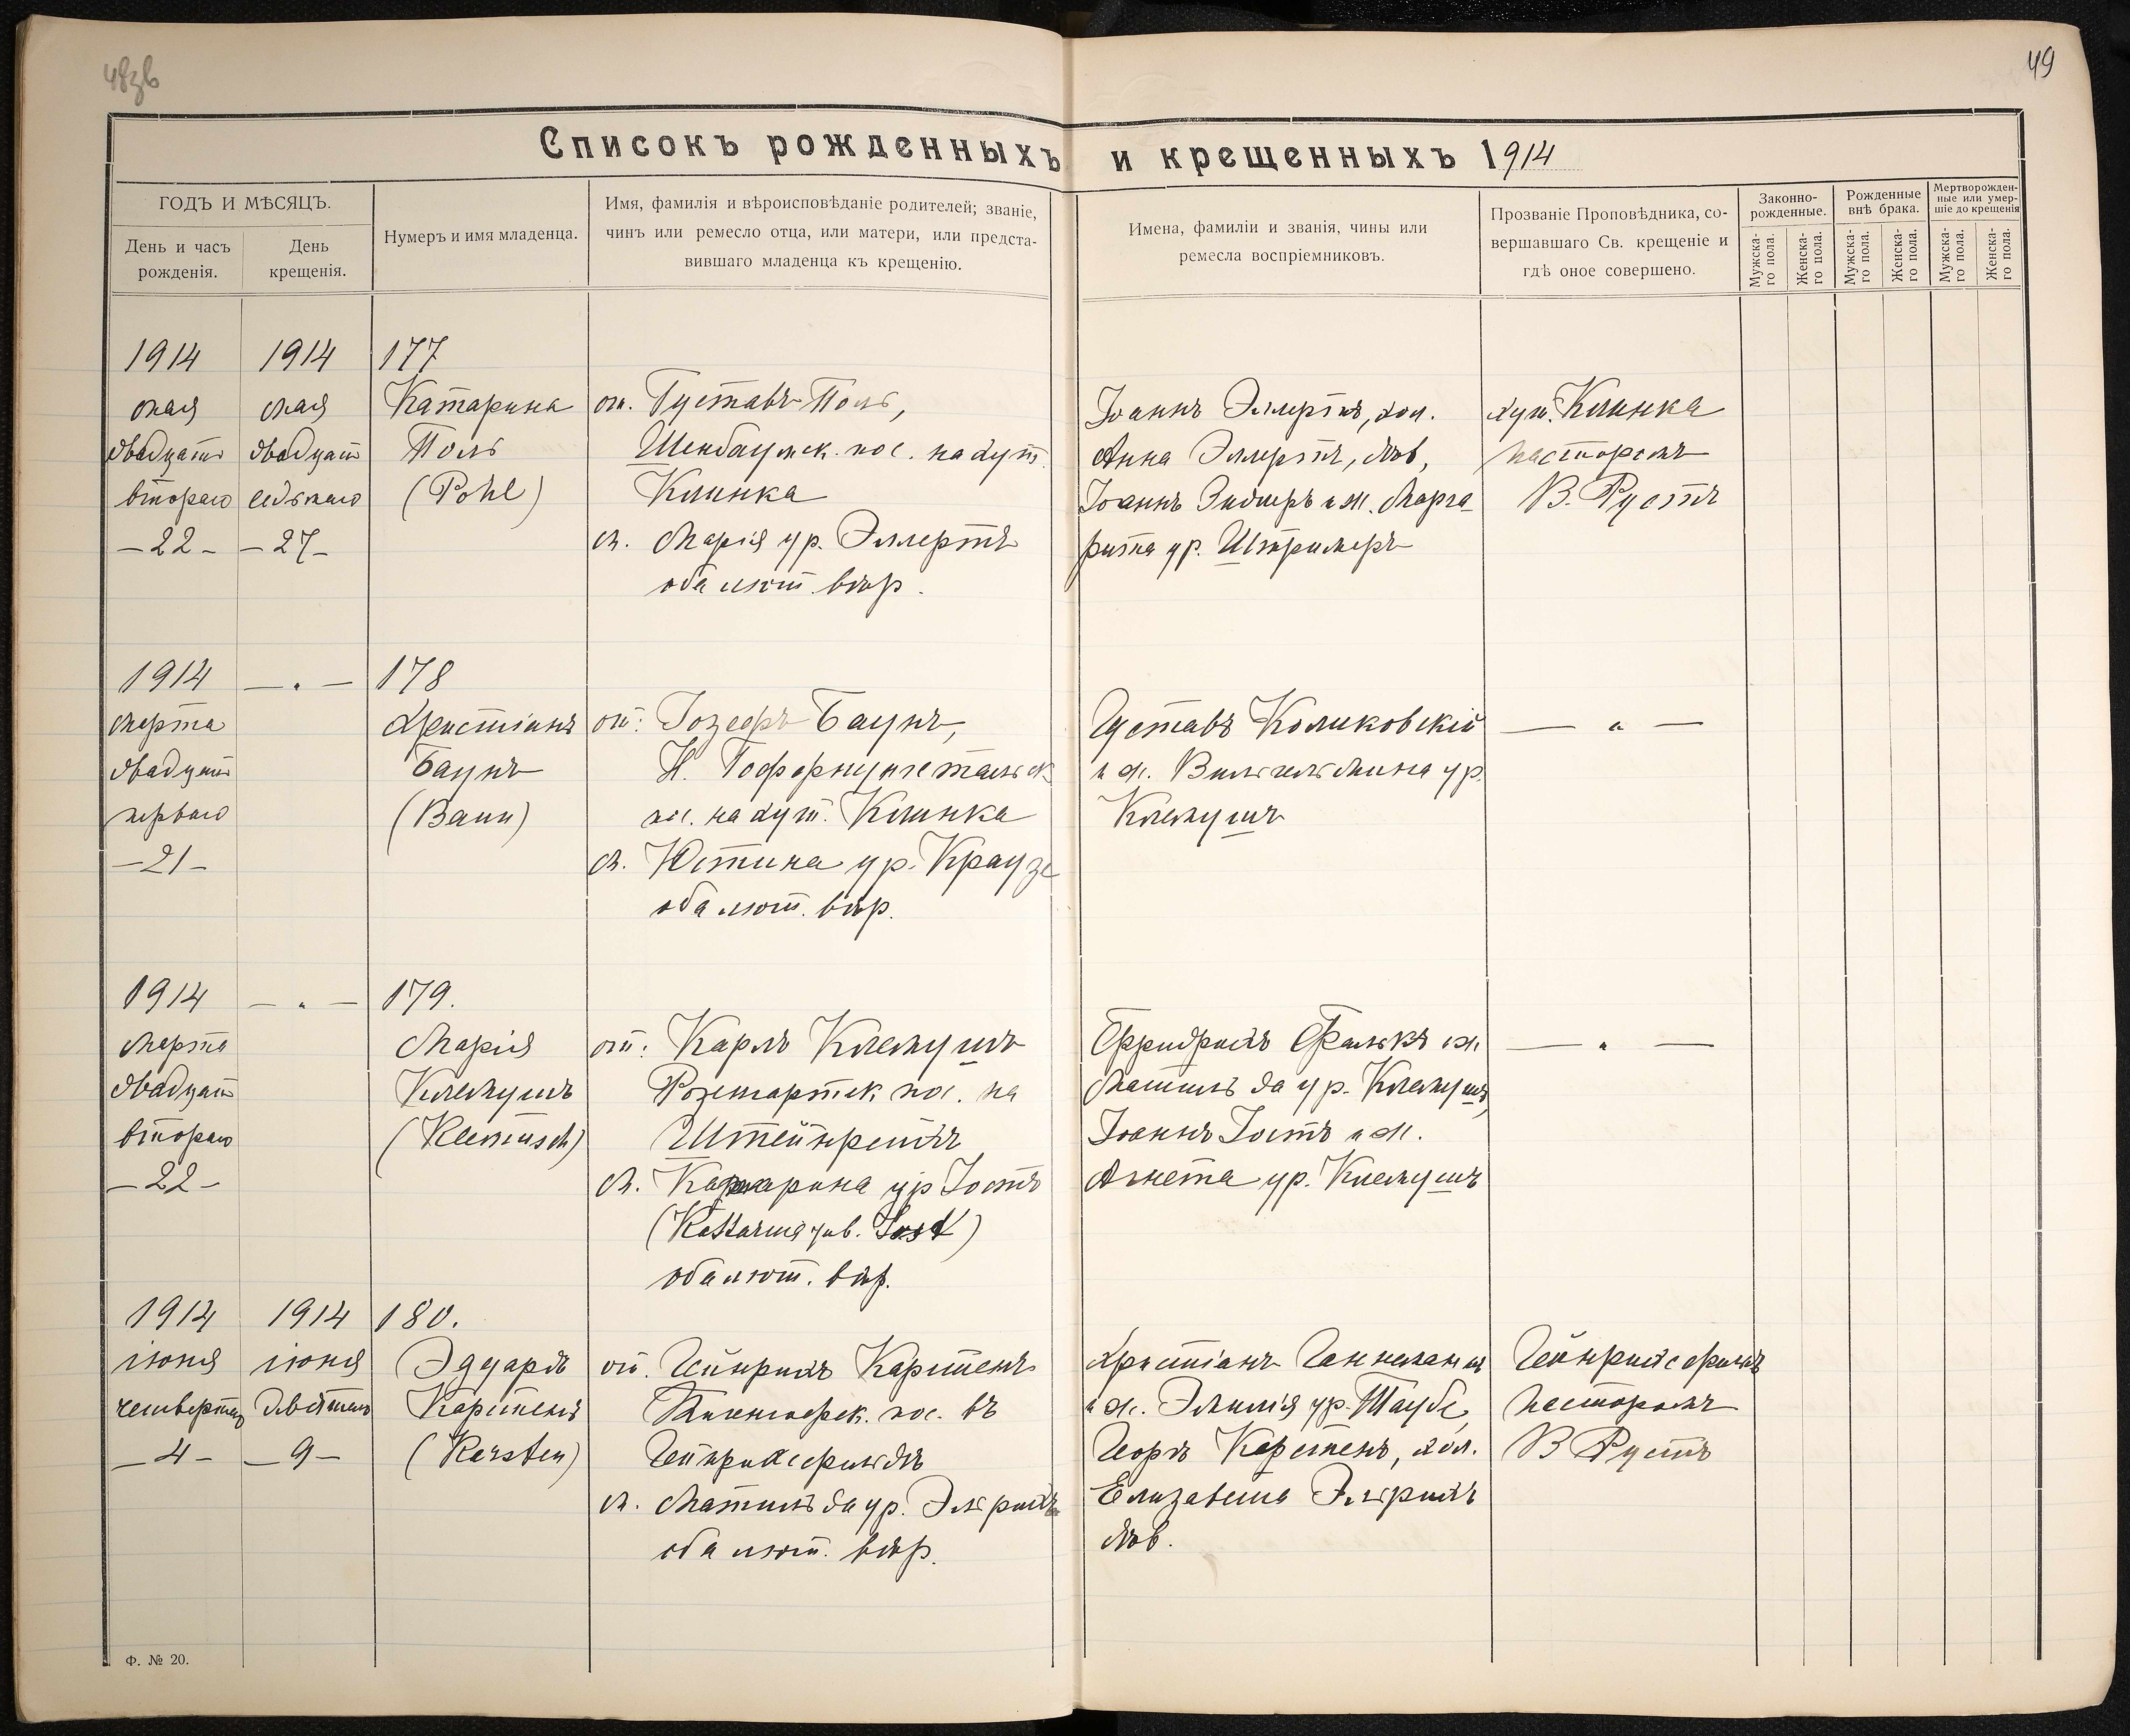 48зв
49
Списокъ рожденныхъ и крещенныхъ 1914
ГОДЪ И МѢСЯЦЪ.
День и часъ рожденія.
День крещенія.
Нумеръ и имя младенца.
Имя, фамилія и вѣроисповѣданіе родителей; званіе,
чинъ или ремесло отца, или матери, или предста-
вившаго младенца къ крещенію.
Имена, фамиліи и званія, чины или
ремесла воспріемниковъ.
Прозваніе Проповѣдника, со-
вершавшаго Св. крещеніе и
гдѣ оное совершено.
Законно-
рожденные.
Рожденные
внѣ брака.
Мертворожден-
ные или умер-
шіе до крещенія
Мужска-
го пола.
Женска-
го пола.
Мужска-
го пола.
Женска-
го пола.
Мужска-
го пола.
Женска-
го пола.
1914
мая
двадцать
второго
—22—
1914
мая
двадцать
седьмого
—27—
177
Катарина
Поль
(Pohl)
от. Густавъ Поль,
Шенбаумск. пос. на хут.
Клинка
м. Марія ур. Эллертъ
оба лют. вѣр.
Іоаннъ Эллертъ, хол.
Анна Эллертъ, дѣв,
Іоаннъ Зидлеръ и ж. Марга
рита ур. Штримеръ
хут. Клинка
пасторомъ
В. Рустъ
1914
марта
двадцать
перваго
—21—
— „ —
178
Христіанъ
Баунъ
(Baun)
от: Іозефъ Баунъ,
Н. Гофернунгстальск
пос. на хут. Клинка
м. Юстина ур. Краузе
оба лют. вѣр.
Густавъ Коликовскій
и ж. Вильгельмина ур.
Клемушъ
— „ —
1914
марта
двадцать
второго
—22—
— „ —
179.
Марія
Клемушъ
(Klemusch)
от: Карлъ Клемушъ
Розенгартск. пос. на
Штейнрейхъ
м. Катарина ур Іостъ
(Katharina geb. Jost)
оба лют. вѣр.
Фридрихъ Фалькъ и ж.
Матильда ур. Клемушъ,
Іоаннъ Іостъ и ж.
Агнета ур. Клемушъ
— „ —
1914
іюня
четвертаго
—4—
1914
іюня
девятаго
—9—
180.
Эдуардъ
Карстенъ
(Karsten)
от. Гейнрихъ Карстенъ
Тигенгофск. пос. въ
Гейнрихсфельдъ
м. Матильда ур. Эльрихъ
оба лют. вѣр.
Христіанъ Ганнеманъ
и ж. Эмилія ур. Таубе,
Георгъ Карстенъ, хол.
Елизавета Эльрихъ
дѣв.
Гейнрихсфельдъ
пасторомъ
В Рустъ
Ф. № 20.